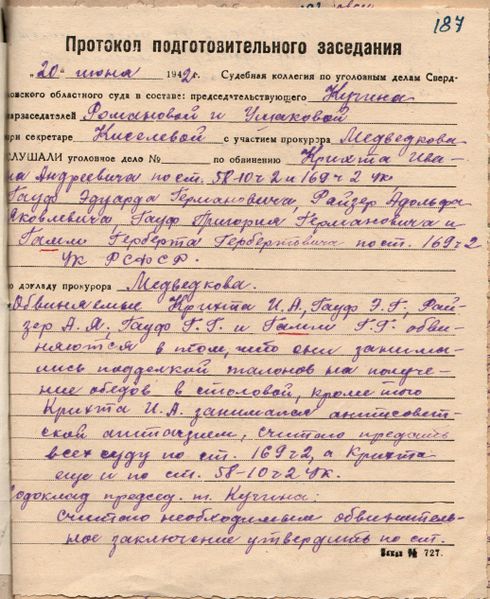 187
Протокол подготовительного заседания
„20“ июня 1942г. Судебная коллегия по уголовным делам Сверд-
ловского областного суда в составе: председательствующего Кугина
нарзаседателей Романовой и Ушаковой
при секретаре Киселевой с участием прокурора Медведкова
СЛУШАЛИ уголовное дело № по обвинению Крихта Ива-
на Андреевича по ст. 58-10ч2 и 169ч2 УК
Гауф Эдуарда Германовича, Райзер Адольфа
Яковлевича, Гауф Григория Германовича и
Гамм Герберта Гербертовича по ст. 169ч2
УК РСФСР.
по докладу прокурора Медведкова.
Обвиняемые Крихта И.А, Гауф Э.Г, Рай-
зер А.Я, Гауф Г.Г. и Гамм Г.Г. обви-
няются в том, что они занима-
лись подделкой талонов на получе-
ние обедов в столовой, кроме того
Крихта И.А. занимался антисовет-
ской агитацией, считаю предать
всех суду по ст. 169ч2, а Крихта
еще и по ст. 58-10ч2 УК.
Содоклад председ. т. Кугина:
считаю необходимым обвинитель-
ное заключение утвердить по ст.
Заказ № 727.